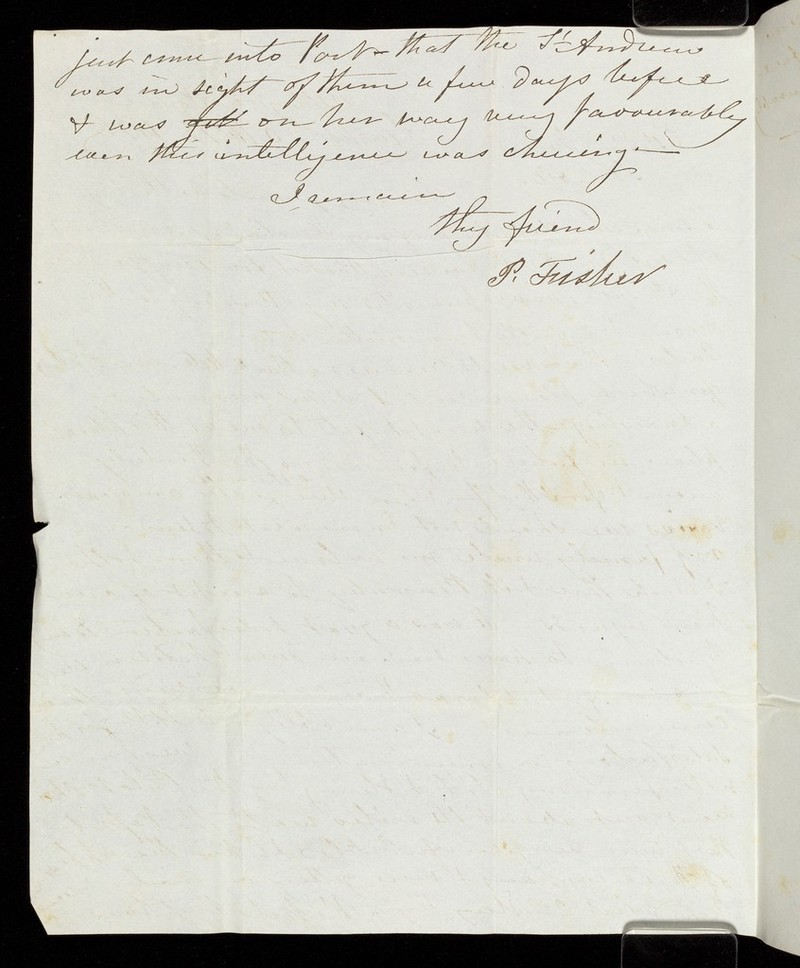 just come into Port – that the St Andrew
was in sight of them a few days before
& was got on her way very favourably
even this intelligence was cheering –
I remain
thy friend
P. Fisher